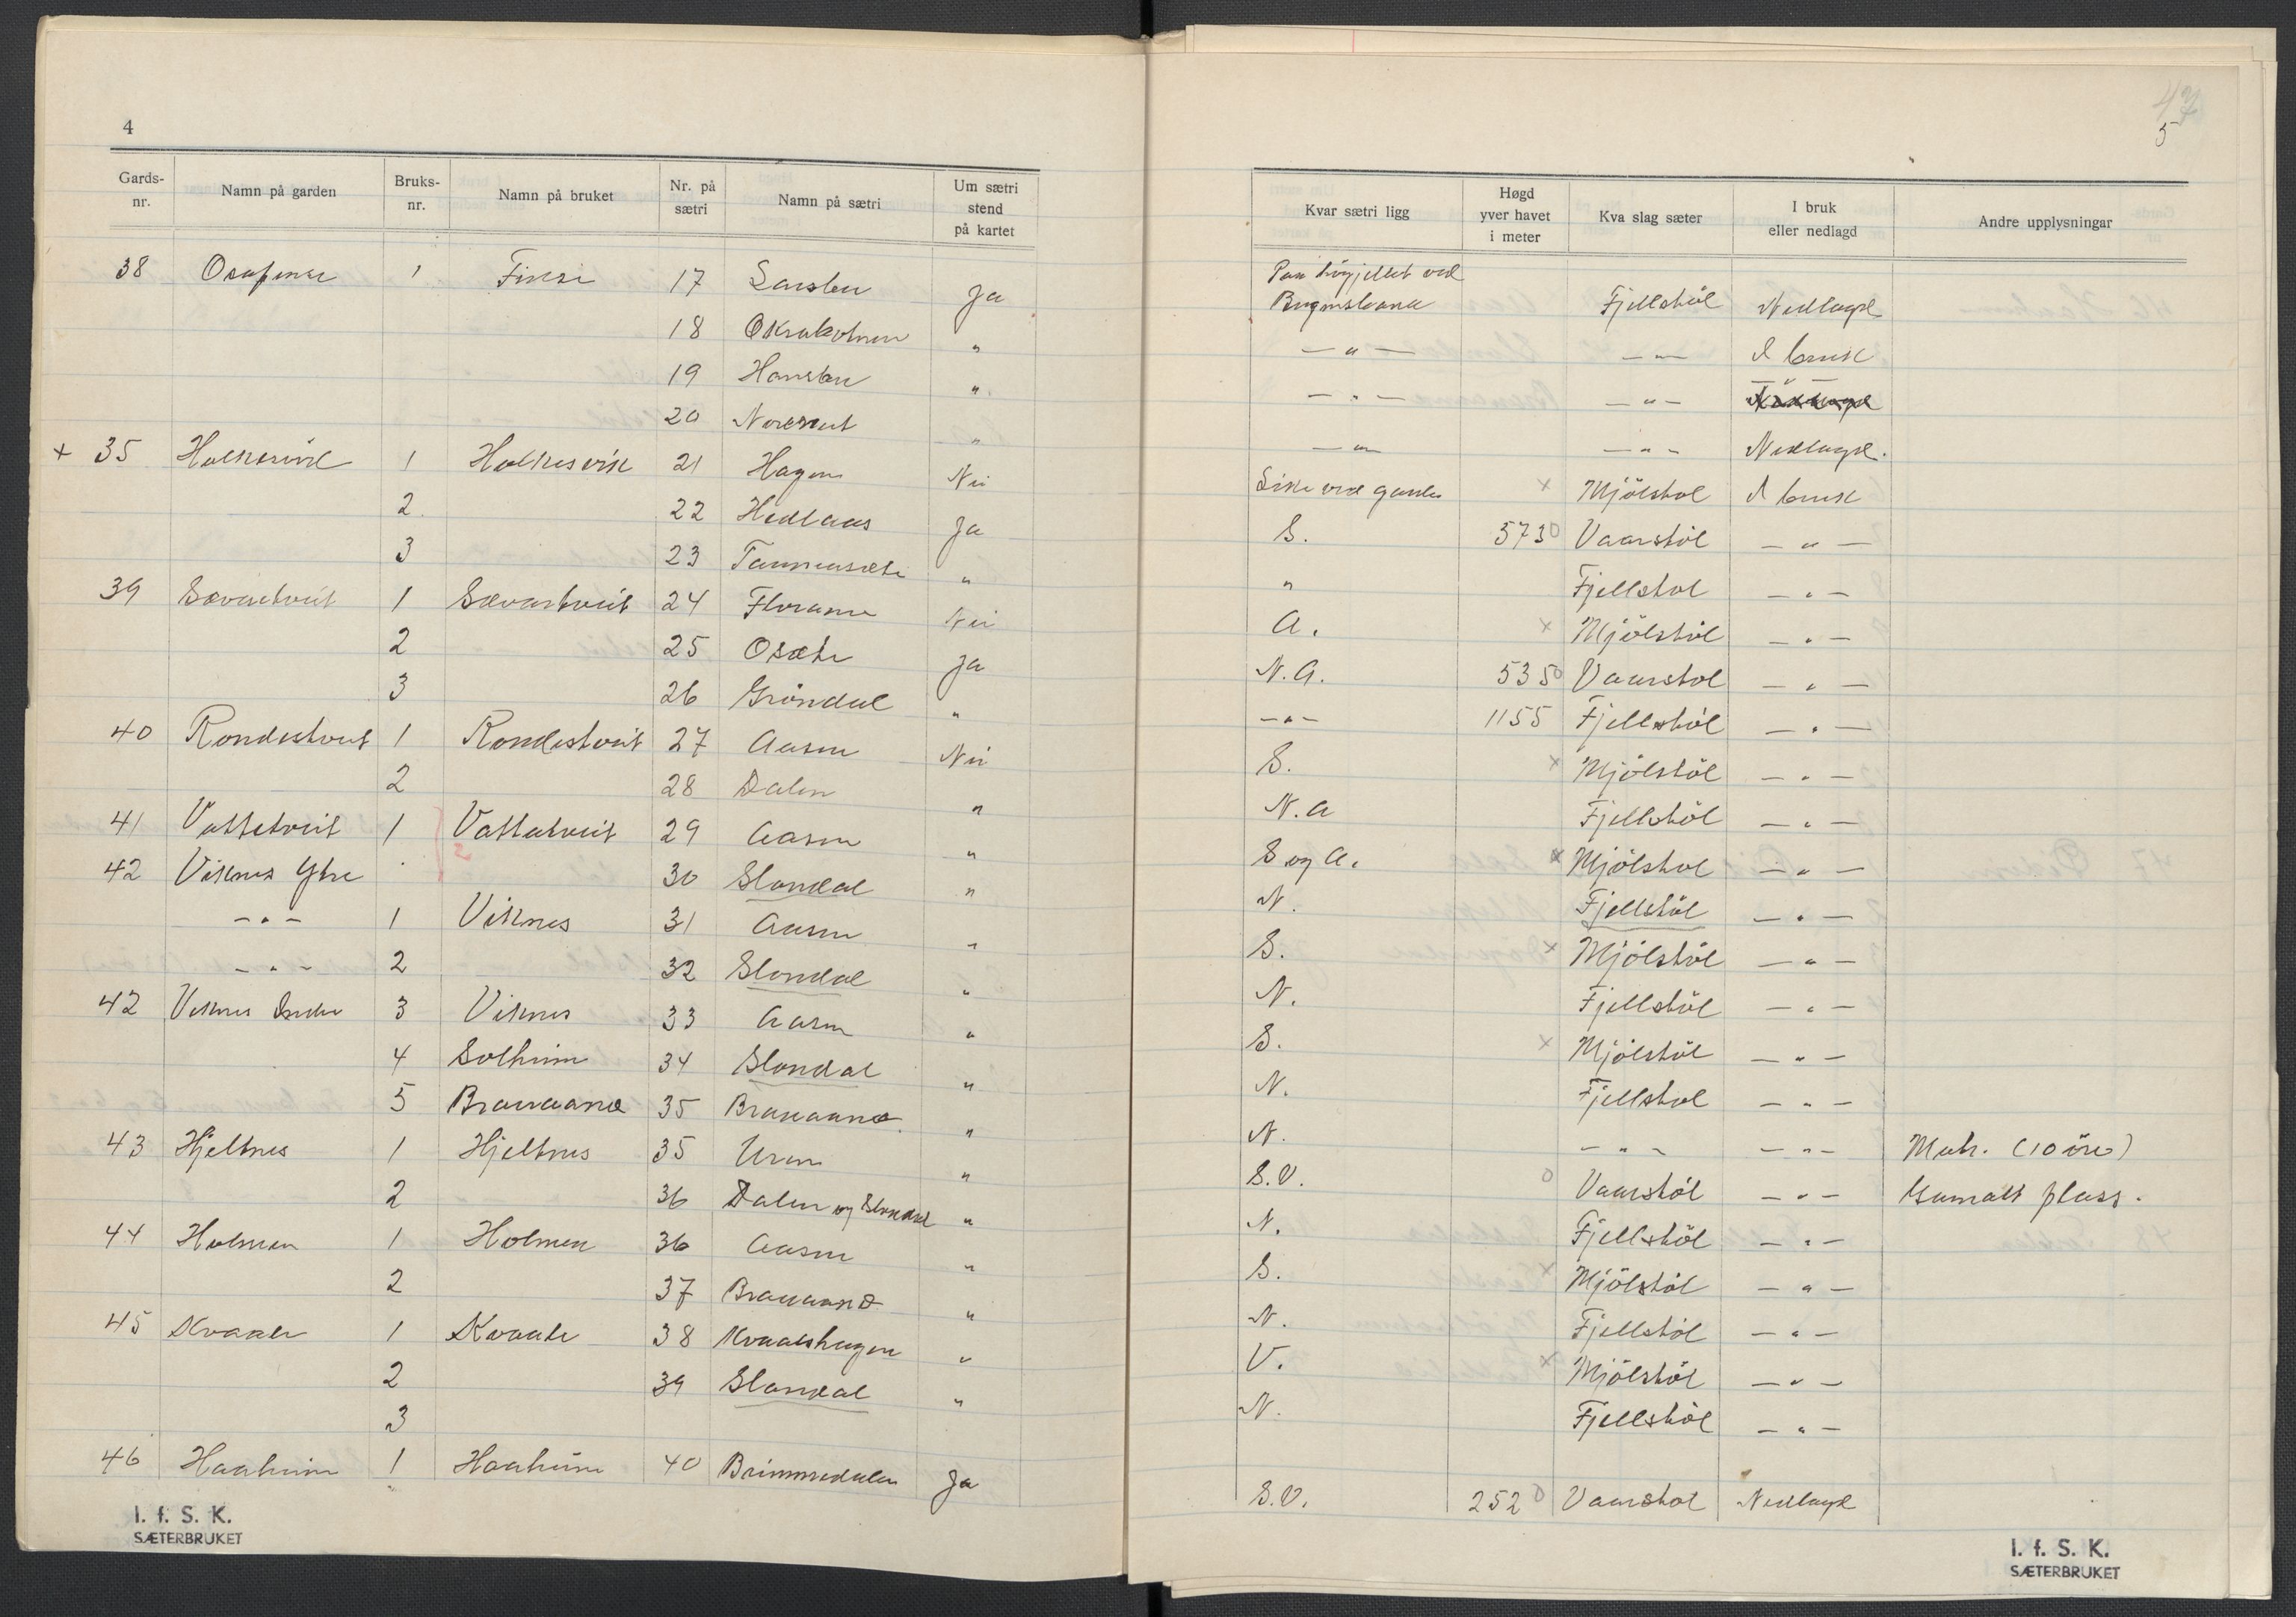 4
Gards-nr. Namn på garden Bruks-nr. Namn på bruket Nr. på sætri Namn på sætri Um sætri stend på kartet
38 Osafjorden 1 Finse 17 Larsbu Ja
18 Oksabotnen "
19 Hansbu "
20 Norenut "
+ 35 Holkesvik 1 Holkesvik 21 Hagen Nei
2 22 Hedlaas Ja
3 23 "
39 Sævartveit 1 Sævartveit 24 Florane Nei
2 25 Osæte Ja
3 26 Gröndal "
40 Rondestveit 1 Rondestveit 27 Aasen Nei
2 28 Dalen "
41 Vattetveit 1 Vattatveit 29 Aasen "
42 Viknes Ytre 30 Slondal "
- " - 1 Viknes 31 Aasen "
- " - 2 32 Slondal "
42 Viknes Indre 3 Viknes 33 Aasen "
4 Solheim 34 Slondal "
5 Braupaand 35 "
43 Hjeltnes 1 Hjeltnes 35 Uren "
2 36 Dalen og Slondal "
44 Holmen 1 Holmen 36 Aasen "
2 37 "
45 Kvaale 1 Kvaale 38 Kvaalshagen "
2 39 Slondal "
3
46 Haaheim 1 Haaheim 40 Brimmedalen Ja
I. f. S. K.
SÆTERBRUKET
47
5
Kvar sætri ligg Høgd yver havet i meter Kva slag sæter I bruk eller nedlagd Andre upplysningar
Paa högfjellet ved
Fjellstöl Nedlagd
- " - - " - I bruk
- " - - " - - " -
- " - - " - Nedlagd.
Like ved garden x Mjölstöl I bruk
S. 573 0 Vaarstöl - " -
" Fjellstöl - " -
A. x Mjölstöl - " -
N. A. 535 0 Vaarstöl - " -
- " - 1155 Fjellstöl - " -
S. x Mjölstöl - " -
N. A Fjellstöl - " -
S og A. x Mjölstöl - " -
N. Fjellstöl - " -
S. x Mjölstöl - " -
N. Fjellstöl - " -
S. x Mjölstöl - " -
N. Fjellstöl - " -
N. - " - - " - Matr. (10 öre)
S.V. 0 Vaarstöl - " - Gamalt plass.
N. Fjellstöl - " -
S. x Mjölstöl - " -
N. Fjellstöl - " -
V. x Mjölstöl - " -
N. Fjellstöl - " -
S.V. 252 0 Vaarstöl Nedlagd
I. f. S. K.
SÆTERBRUKET